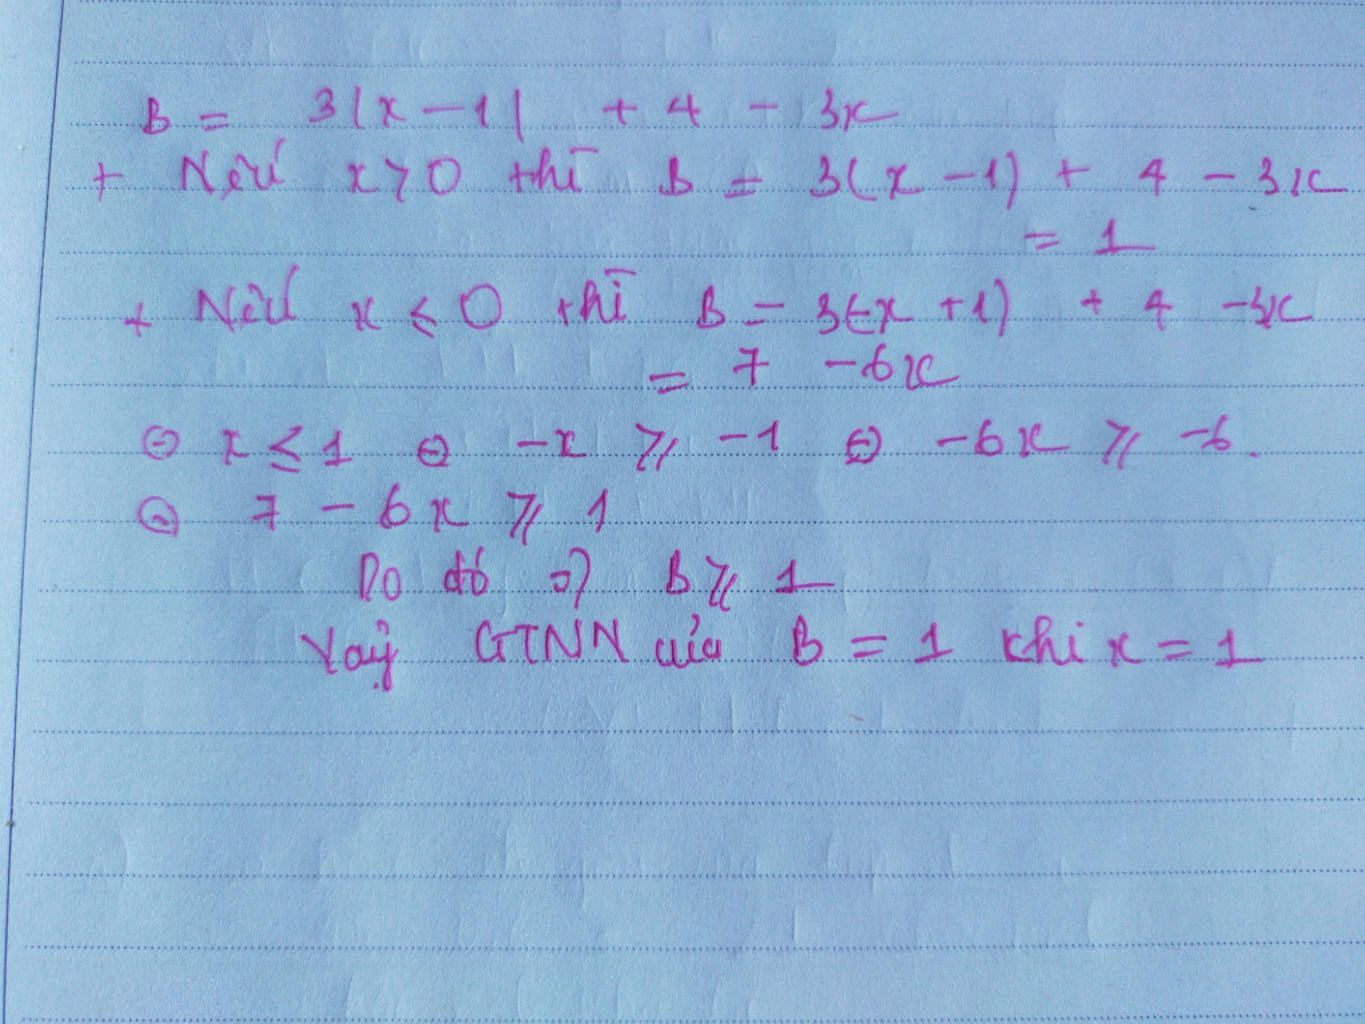 B = 3|x - 1| + 4 - 3x
+ Nếu x > 0 thì B = 3(x - 1) + 4 - 3x
= 1
+ Nếu x ≤ 0 thì B = 3(-x + 1) + 4 - 3x
= 7 - 6x
⇔ x ≤ 1 ⇔ -x ≥ -1 ⇔ -6x ≥ -6.
⇔ 7 - 6x ≥ 1
Do đó B ≥ 1
Vậy GTNN của B = 1 khi x = 1